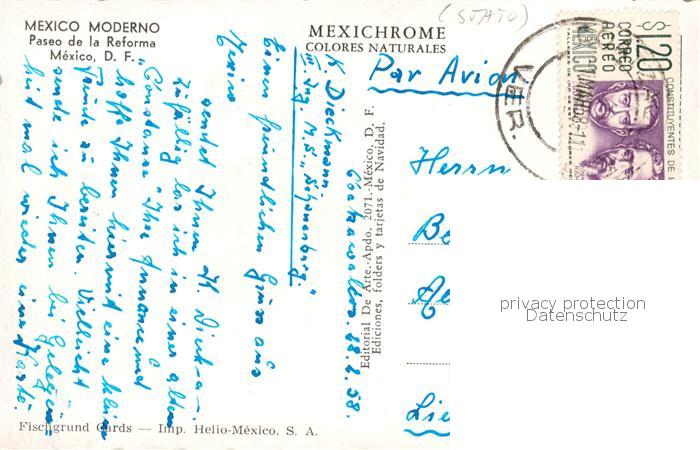 MEXICO MODERNO
Paseo de la Reforma
México, D. F.
MEXICHROME
COLORES NATURALES
(STATO)
Par Avion
$1.20
CORREO
AEREO
MEXICO
CONSTITUYENTES DE
VER.
Herrn
Be
Lie
privacy protection
Datenschutz
Editorial De Arte.-Apdo. 2071.-México, D. F.
Ediciones, folders y tarjetas de Navidad.
Coatzacoalcos. 28.2.58.
Einen freundlichen Gruss aus
Mexico
sendet Ihnen K. Dieckmann.
Zufällig las ich in einer alten
"Constanze" Ihre Annonce und
hoffe Ihnen hiermit eine kleine
Freude zu bereiten. Vielleicht
sende ich Ihnen bei Gelegen-
heit mal wieder eine Karte.
K. Dieckmann
III. Ing. M.S.
Fischgrund Cards — Imp. Helio-México, S. A.